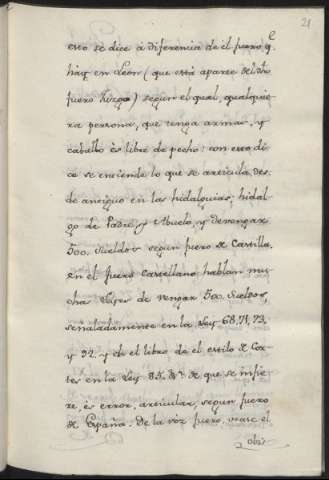 21
esto se dice a diferencia de el fuero q.e
hay en Leon (que està aparte del dho
fuero Juzgo) segun el qual, qualquie
ra persona, que tenga armas, y
caballo ès libre de pecho: con esto di
ce se entiende lo que se articula des
de antiguo en las hidalguias; hidal
go de Padre, y Abuelo, y devengar
500. sueldos segun fuero de Castilla,
en el fuero castellano hablan mu
chas Leyes de vengar 500. sueldos,
señaladamente en la Ley 68, 71, 73,
y 92. y de el libro de el estilo de Cor
tes en la Ley 85. de que se infie
re, ès error, articular, segun fuero
de España. De la voz fuero, vease el
obis